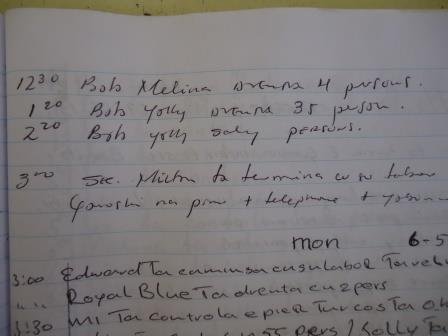 12 30 Bob Melina drenta 4 persons.
1 20 Bob yolly drenta 35 person.
2 20 Bob yolly saly persons.
3 00 Sec. Milton ta termina cu su labor
na pier + telephone +
mon 6-5
3:00 Edward Ta cuminsa cu su labor Ta
" " Royal Blue Ta drenta cu 2 pers
3:30 MI Ta controla e pier Tur cos Ta
55 pers / Solly Ta